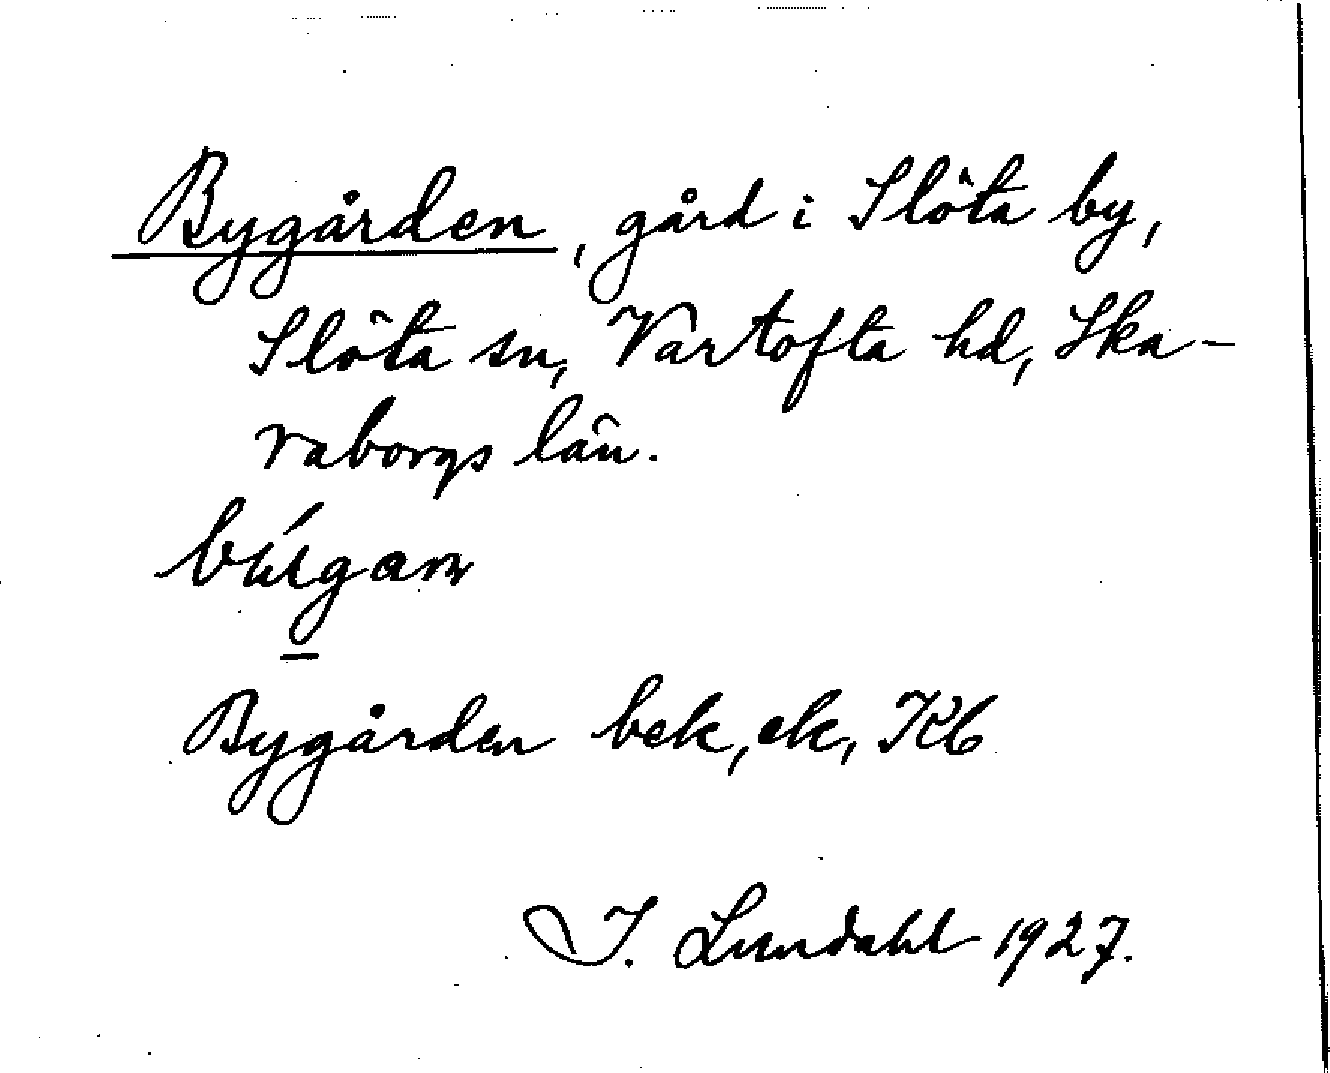 Bygården, gård i Slöta by,
Slöta sn, Vartofta hd, Ska-
raborgs län.
Bygården bek, ek, Kb
I. Lundahl 1927.